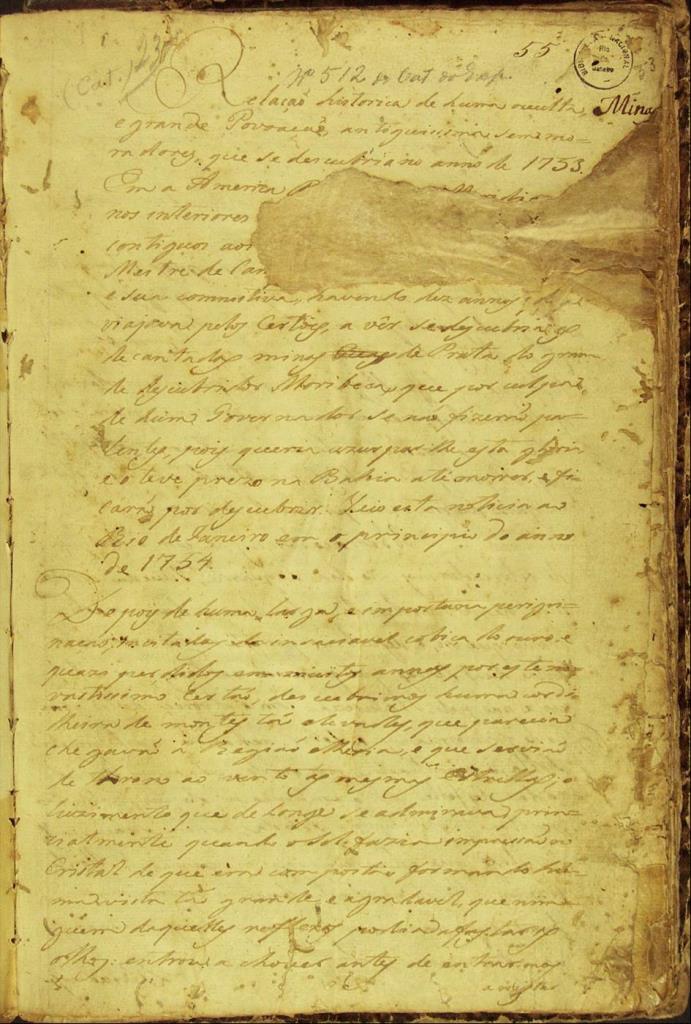 (Cat.) 23
55
Nº 512 do Cat. da Exp.
BIBLIOTHECA NACIONAL Rio de Janeiro
Minas
Relação historica de huma occulta,
e grande Povoação, antiquissima sem mo-
radores, que se descubriu no anno de 1753.
Em a America
nos interiores
contiguos aos
Mestre de Can
e sua commitiva, havendo dez annos, q̃
viajava pelos Certões, a vêr se descubria as
decantadas minas de Prata do gran-
de descubridor Moribeca, que por culpa
de hum Governador se não fizerão pa-
tentes, pois queria uzurparlhe esta gloria
e o teve prezo na Bahia até morrer, e fi-
carão por descubrir. Veio esta noticia ao
Rio de Janeiro em o principio do anno
de 1754.
Depois de huma larga, e importuna perigri-
nação, incitados da insaciavel cobiça do ouro, e
quazi perdidos em muitos annos por este
vastissimo Certão, descubrimos huma cordi-
lheira de montes tão elevados, que parecia
chegavão á Região etheria, e que servião
de throno ao vento, ás mesmas Estrellas; o
luzimento que de longe se admirava, prin-
cipalmente quando o Sol fazia impressão ao
Cristal de que era composta, formando hu-
ma vista tão grande e agradavel, que nin-
guem daquelles reflexos podia afastar os
olhos: entrou a chover antes de entrarmos
a registar